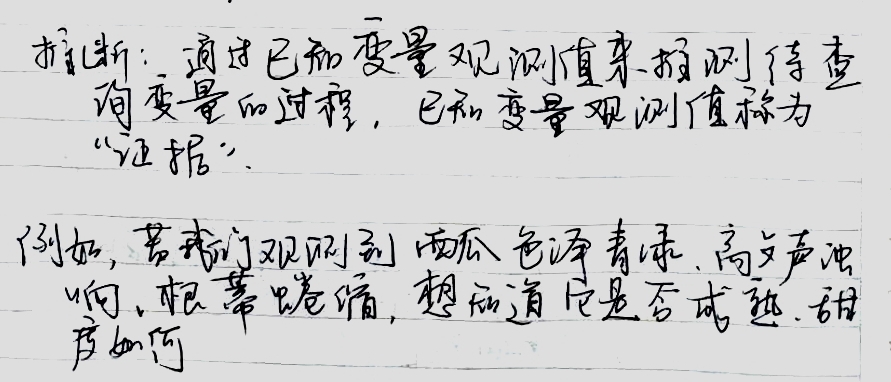 推断：通过已知变量观测值来推测待查
询变量的过程，已知变量观测值称为
“证据”.
例如，若我们观测到西瓜色泽青绿、高文声浊
响、根蒂蜷缩，想知道它是否成熟、甜
度如何